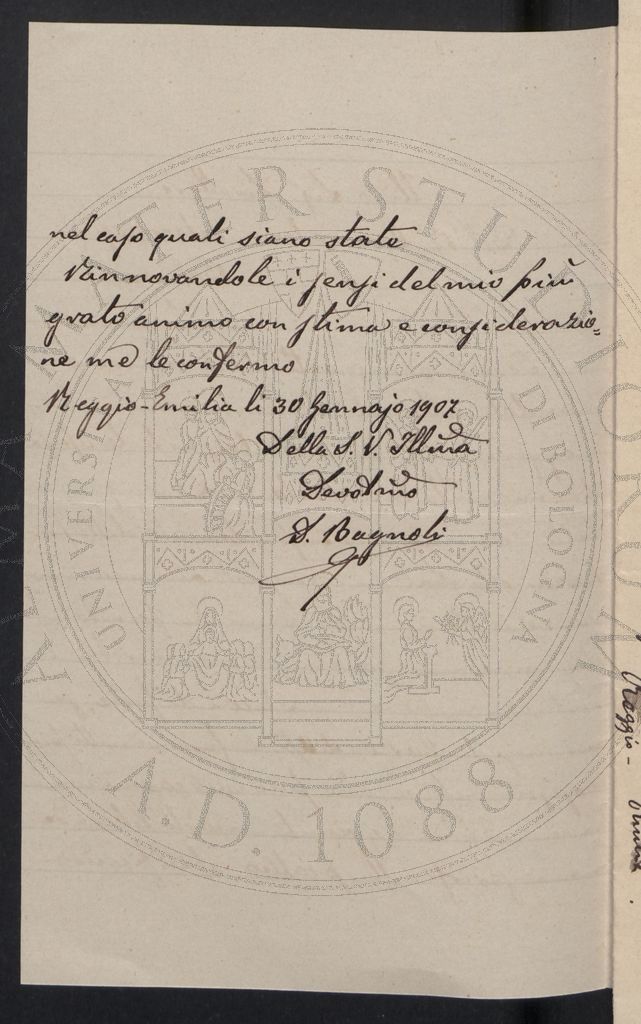 nel caso quali siano state
Rinnovandole i sensi del mio più
grato animo con stima e considerazio=
ne me le confermo
Reggio-Emilia li 30 Gennajo 1907
Della S. V. Illma
Devotmo
S. Bagnoli
ALMA MATER STUDIORUM
UNIVERSITÀ DI BOLOGNA
A.D. 1088
Reggio-